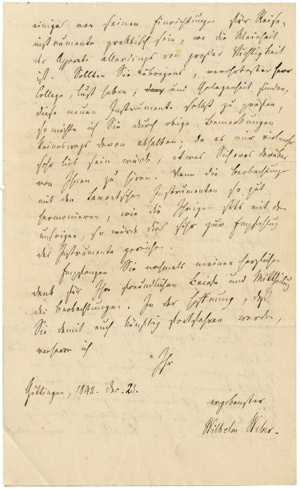 einige von seinen Einrichtungen für Reise-
instrumente praktisch sein, wo die Kleinheit
der Apparate allerdings von großer Wichtigkeit
ist. Sollten Sie übrigens, verehrtester Herr
College, Lust haben, und Gelegenheit finden,
diese neuen Instrumente selbst zu prüfen,
so möchte ich Sie durch obige Bemerkungen
keineswegs davon abhalten, da es mir vielmehr
sehr lieb sein würde, etwas Sicheres darüber
von Ihnen zu hören. Wenn die Beobachtungen
mit den Instrumenten so gut
harmoniren, wie die Ihrigen stets mit den
unsrigen, so würde das sehr zur Empfehlung
des Instruments gereichen.
Empfangen Sie nochmals meinen herzlichen
Dank für Ihre freundlichen Briefe und Mittheilung
der Beobachtungen. In der Hoffnung, daß
Sie damit auch künftig fortfahren werden,
verharre ich
Ihr
Göttingen, 1842. Dec. 23.
ergebenster
Wilhelm Weber.